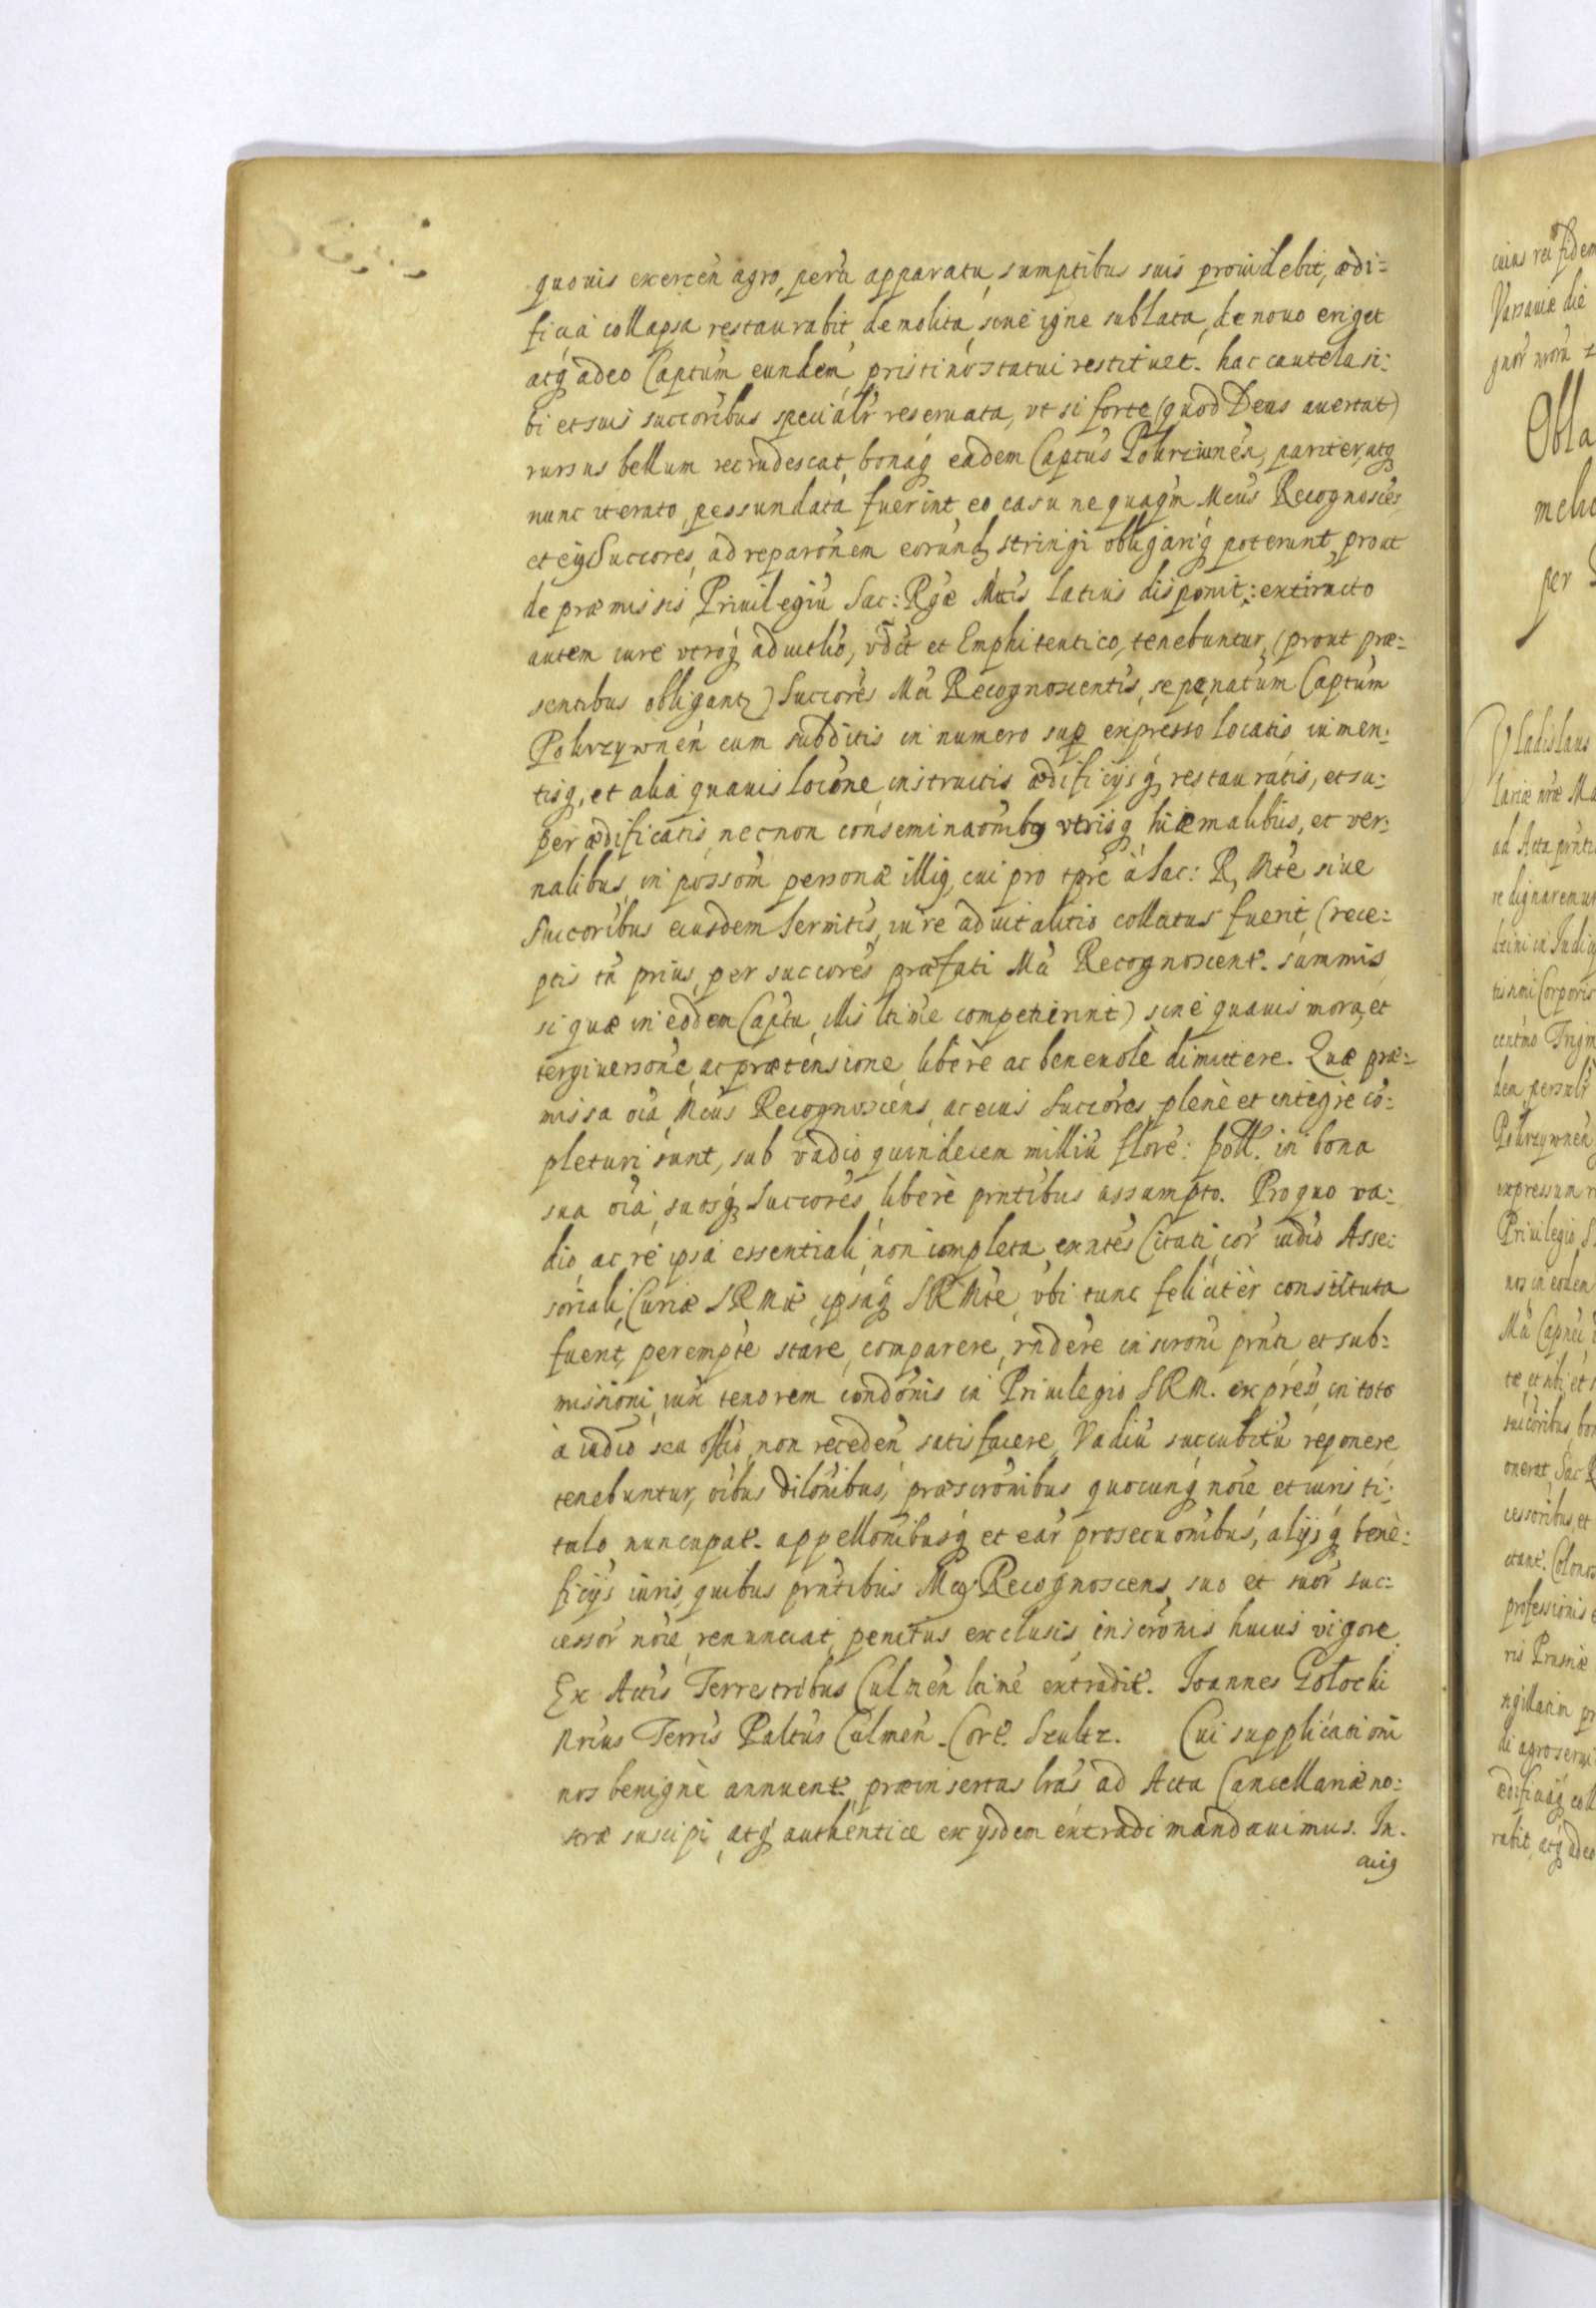 quouis exercen̄ agro, peru apparatu, sumptibus suis prouidebit, ædi=
ficia collapsa restaurabit, demolita, siue igne sublata, de nouo eriget
atq́ adeo Captum eundem pristino statui restituet. hac cautela si:
bi et suis succoribus speciálr̄ reseruata, vt si forte (quod Deus auertat)
rursus bellum recrudescat, bonaq́ eadem Captus Pokrziwnen̄, pariter, atq
nunc iterato, pessundata fuerint eo casu ne quaqm̄ Mcus Recognosces
et eiꝰ Succores, ad reparoñem eorund stringi obligariq́ poterunt, prout
de præmissis Priuilegiū Sac: Rgæ Mtis latius disponit: extincto
autem iure vtroq́ aduitlio, vdct et Emphiteutico, tenebuntur, (prout præ=
sentibus obligant) Succores Mci Recognoscentis, sepenatum Captum
Pokrzywnen̄ cum subditis in numero sup expresso locatis iumen:
tisq, et alia quauis locōne, instructis ædificijsq́ restauratis, et su:
per ædificatis, necnon conseminaōnibꝰ vtrisq hiæmalibus, et ver:
nalibus, in possom̄ personæ illiꝰ, cui pro tpre à Sac: R, Mte siue
Succoribus eiusdem Sermitis, iure aduitalitio collatus fuerit, (rece=
ptis tn̄ prius, per succores præfati Mci Recognoscent. summis
si quæ in eodem Captu, illis ltime competierint) sine quauis mora, et
tergiuersone, ac prætensione, liberè ac beneuolè dimittere. Quæ præ=
missa oīa, Mcus Recognoscens, ac eius Succores, plenè et integrè cō=
pleturi sunt, sub vadio quindecem milliū flore: poll. in bona
sua oīa, suosq́ Succores, liberè prn̄tibus assumpto. Pro quo va:
dio, ac re ipsa essentiali, non completa, exn̄tes Citati, cor̄ iudio Asse:
soriali, Curiæ SRMtis, ipsaq́ SRMte, vbi tunc felicitèr constituta
fuerit, peremptè stare, comparere, rn̄dere inscroni prn̄ti et sub=
missioni, iux̄ tenorem condonis in Priuilegio SRM. expres̄, in toto
à iudio seu offio, non receden̄ satisfacere, Vadiū succubitū reponere
tenebuntur, oībus dilonibus, præscronibus quocunq́ noīe et iuris ti:
tulo nuncupat. appellonibusq́ et ear̄ prosecuonibus, alijsq́ bene:
ficijs iuris, quibus prn̄tibus Mcꝰ Recognoscens, suo et suor̄ suc:
cessor̄ noīe, renunciat, penitus exclusis, inscronis huius vigore.
Ex Actis Terrestribus Culmen̄ ltime extradit. Ioannes Gotocki
Nrius Terris Paltus Culmen̄. Cort. Szultz. Cui supplicationi
nos benignè annuent. præinsertas lrās ad Acta Cancellariæ no:
stræ suscipi, atq́ authenticè ex ijsdem extradi mandauimus. In.
cuiꝰ
cuius rei fidem
Varsauiæ die
Obla
per
Vladislaus
lariæ nræ Ma
ad Acta prn̄ti
re dignaremur
tissimi Corporis
Pokrzywnen̄
expressum
Priuilegio
nos in eodem
succoribus
cessoribus, et
professionis
ris Prussiæ